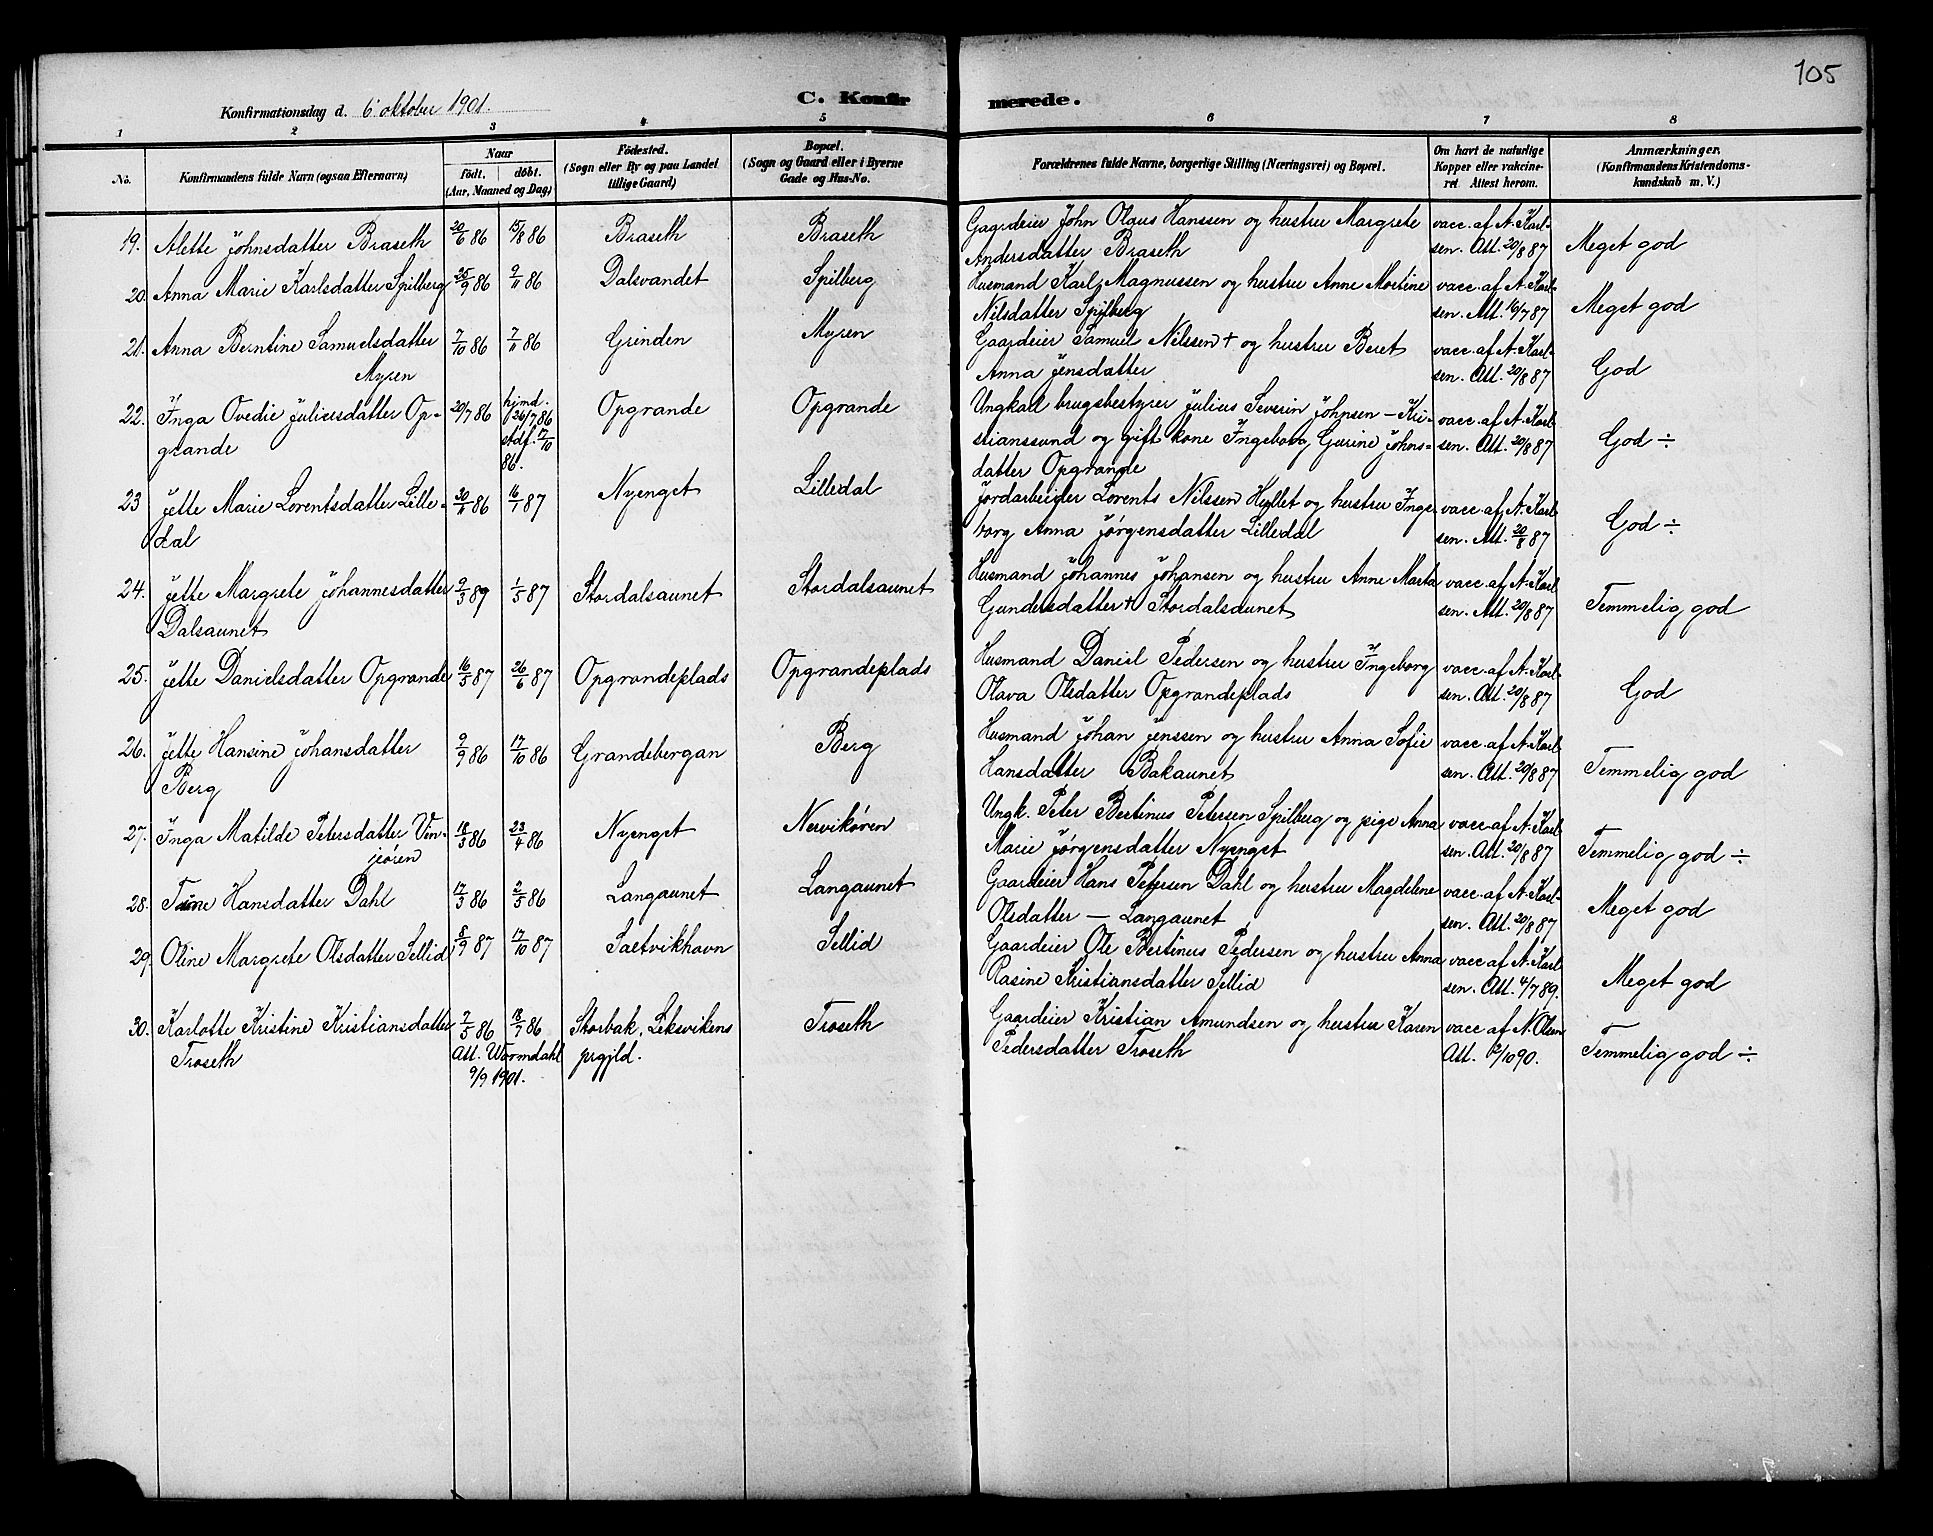 105
Konfirmationsdag d. 6 oktober 1901.
C. Konfirmerede.
1 2 3 4 5 6 7 8
No.
Konfirmandens fulde Navn (ogsaa Efternavn)
Naar
födt. döbt.
(Aar, Maaned og Dag)
Födested.
(Sogn eller By og paa Landet
tillige Gaard)
Bopæl.
(Sogn og Gaard eller i Byerne
Gade og Hus-No.
Forældrenes fulde Navne, borgerlige Stilling (Næringsvei) og Bopæl.
Om havt de naturlige
Kopper eller vakcine-
ret Attest herom.
Anmærkninger.
(Konfirmandens Kristendoms-
kundskab m. V.)
19. Alette Johnsdatter Braseth 20/6 86 15/8 86 Braseth Braseth Gaardeier John Olaus Hanssen og hustru Margrete vacc. af A. Karl-
Andersdatter Braseth sen. Att. 20/8 87 Meget god
20. Anna Marie Karlsdatter Spilberg 25/9 86 9/11 86 Dalsvandet Spilberg Husmand Karl Magnussen og hustru Anne Martine vacc. af A. Karl-
Nilsdatter Spilberg sen. Att. 16/7 87 Meget god
21. Anna Berntine Samuelsdatter 7/10 86 7/11 86 Grinden Myren Gaardeier Samuel Nilssen + og hustru Beret vacc. af A. Karl-
Myren Anna Jensdatter sen. Att. 20/8 87 God
22. Inga Ovedie Juliusdatter Op- 20/7 86 hjmd. 26/7 86 Opgrande Opgrande Ungkarl brugsbestyrer Julius Severin Johnsen - Kri- vacc. af A. Karl-
grande stdf. 17/10 86. stianssund og gift kone Ingeborg Gurine Johns- sen. Att. 20/8 87 God ÷
datter Opgrande
23 Jette Marie Lorentsdatter Lille- 30/11 86 16/1 87 Nyenget Lilledal Jordarbeider Lorents Nilssen Hyllet og hustru Inge- vacc. af A. Karl-
dal borg Anna Jörgensdatter Lilledal sen. Att. 20/8 87 God ÷
24. Jette Margrete Johannesdatter 9/3 89 1/5 87 Stordalsaunet Stordalsaunet Husmand Johannes Johansen og hustru Anne Marta vacc. af A. Karl-
Dalsaunet Gundersdatter + Stordalsaunet sen. Att. 20/8 87 Temmelig god
25. Jette Danielsdatter Opgrande 16/5 87 26/6 87 Opgrandeplads Opgrandeplads Husmand Daniel Pedersen og hustru Ingeborg vacc. af A. Karl-
Olava Olsdatter Opgrandeplads sen. Att. 20/8 87 God
26. Jette Hansine Johansdatter 9/9 86 17/10 86 Grandebergan Berg Husmand Johan Jenssen og hustru Anna Sofie vacc. af A. Karl
Berg Hansdatter Bakaunet sen. Att. 20/8 87 Temmelig god
27. Inga Matilde Petersdatter Vin- 18/3 86 23/4 86 Nyenget Nervikören Ungk. Peter Bertinus Petersen Spilberg og pige Anna vacc. af A. Karl-
jeören Marie Jörgensdatter Nyenget sen. Att. 20/8 87 Temmelig god ÷
28. Hansdatter Dahl 17/3 86 2/5 86 Langaunet Langaunet Gaardeier Hans Petersen Dahl og hustru Magdelene vacc. af A. Karl-
Olsdatter - Langaunet sen. Att. 20/8 87 Meget god
29. Oline Margrete Olsdatter Sellid 8/9 87 17/10 87 Saetvikhavn Sellid Gaardeier Ole Bertinus Pedersen og hustru Anna vacc. af A. Karl
Rasine Kristiansdatter Sellid sen. Att. 4/7 89. Meget god
30. Karlotte Kristine Kristiansdatter 7/5 86 18/7 86 Storbak, Leksvikens Troseth Gaardeier Kristian Amundsen og hustru Karen vacc. af N. Olsen
Troseth Att. Wormdahl prgjld. Pedersdatter Troseth Att. 2/10 90. Temmelig god ÷
9/9 1901.